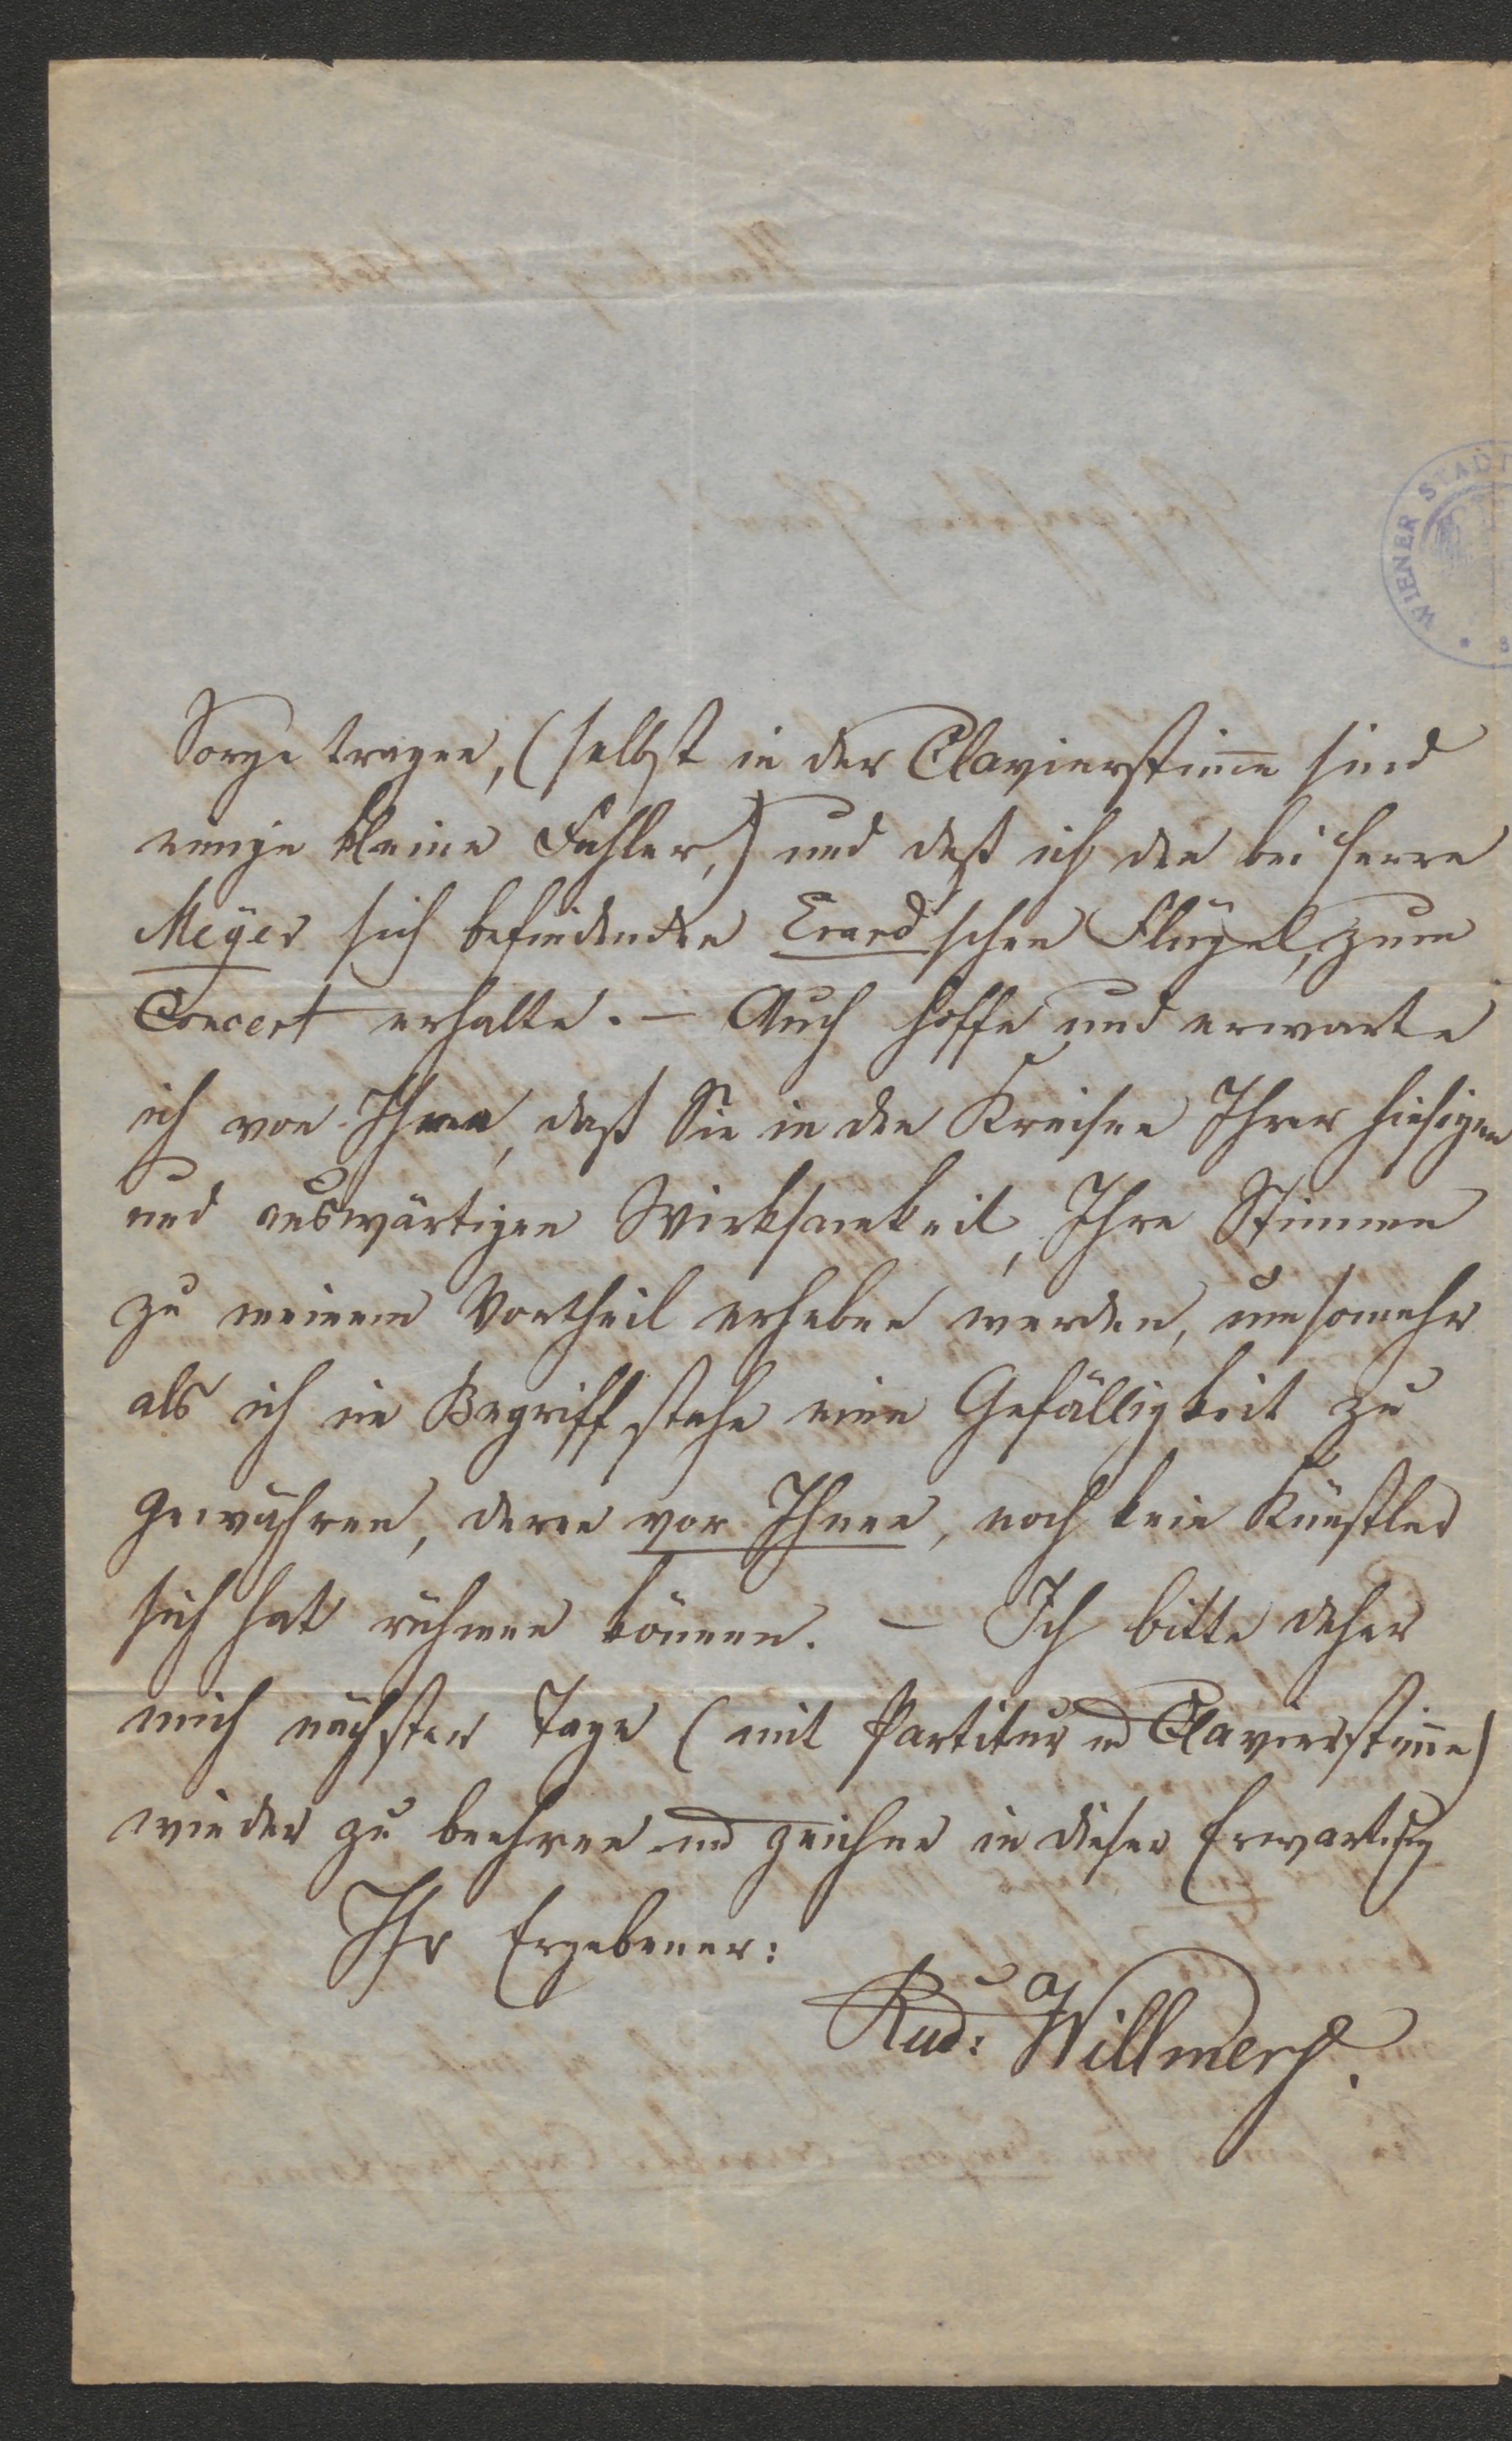 WIENER STADT
Sorge tragen, (selbst in der Clavierstim̅e sind
einige kleine Fehler,) und daß ich den bei Herrn
Meÿer sich befindenden Erard'schen Flügel, zum
Concert erhalte. – Auch hoffe und erwarte
ich von Ihnen, daß Sie in den Kreisen Ihrer hiesigen
und auswärtigen Wirksamkeit, Ihre Stimmen
zu meinem Vortheil erheben werden, umsomehr
als ich im Begriff stehe eine Gefälligkeit zu
gewähren, deren vor Ihnen, noch kein Künstler
sich hat rühmen können. – Ich bitte daher
mich nächster Tage (mit Partitur und Clavierstim̅e)
wieder zu beehren und zeichne in dieser Erwartung
Ihr Ergebener:
Rud: Willmers.